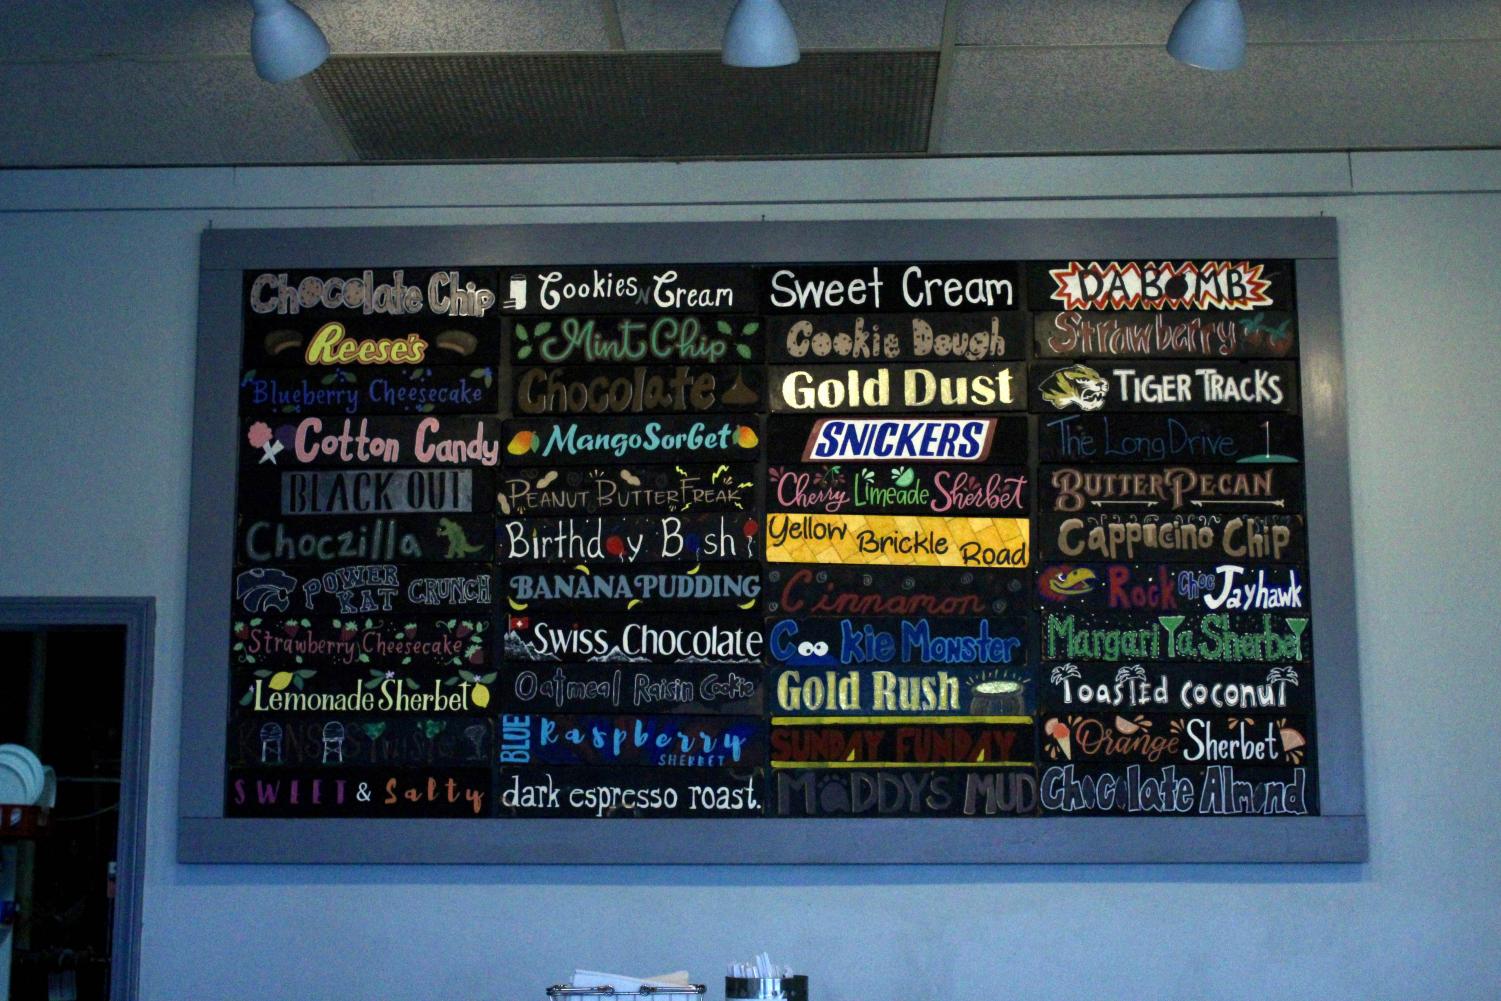 Chocolate Chip
Reese's
Blueberry Cheesecake
Cotton Candy
BLACK OUT
Choczilla
POWER KAT CRUNCH
Strawberry Cheesecake
Lemonade Sherbet
SWEET & Salty
Cookies N Cream
Mint Chip
Chocolate
Mango Sorbet
PEANUT BUTTER FREAK
Birthday Bash
BANANA PUDDING
SWISS CHOCOLATE
Oatmeal Raisin Cookie
BLUE Raspberry
SHERBET
dark espresso roast.
Sweet Cream
Cookie Dough
Gold Dust
SNICKERS
Cherry Limeade Sherbet
Yellow Brickle Road
Cinnamon
Cookie Monster
Gold Rush
SUNDAY FUNDAY
MADDY'S MUD
DA BOMB
Strawberry
TIGER TRACKS
The Long Drive 1
BUTTER PECAN
Cappuccino Chip
Rock Choc Jayhawk
MargariTa Sherbet
Toasted coconut
Orange Sherbet
Chocolate Almond